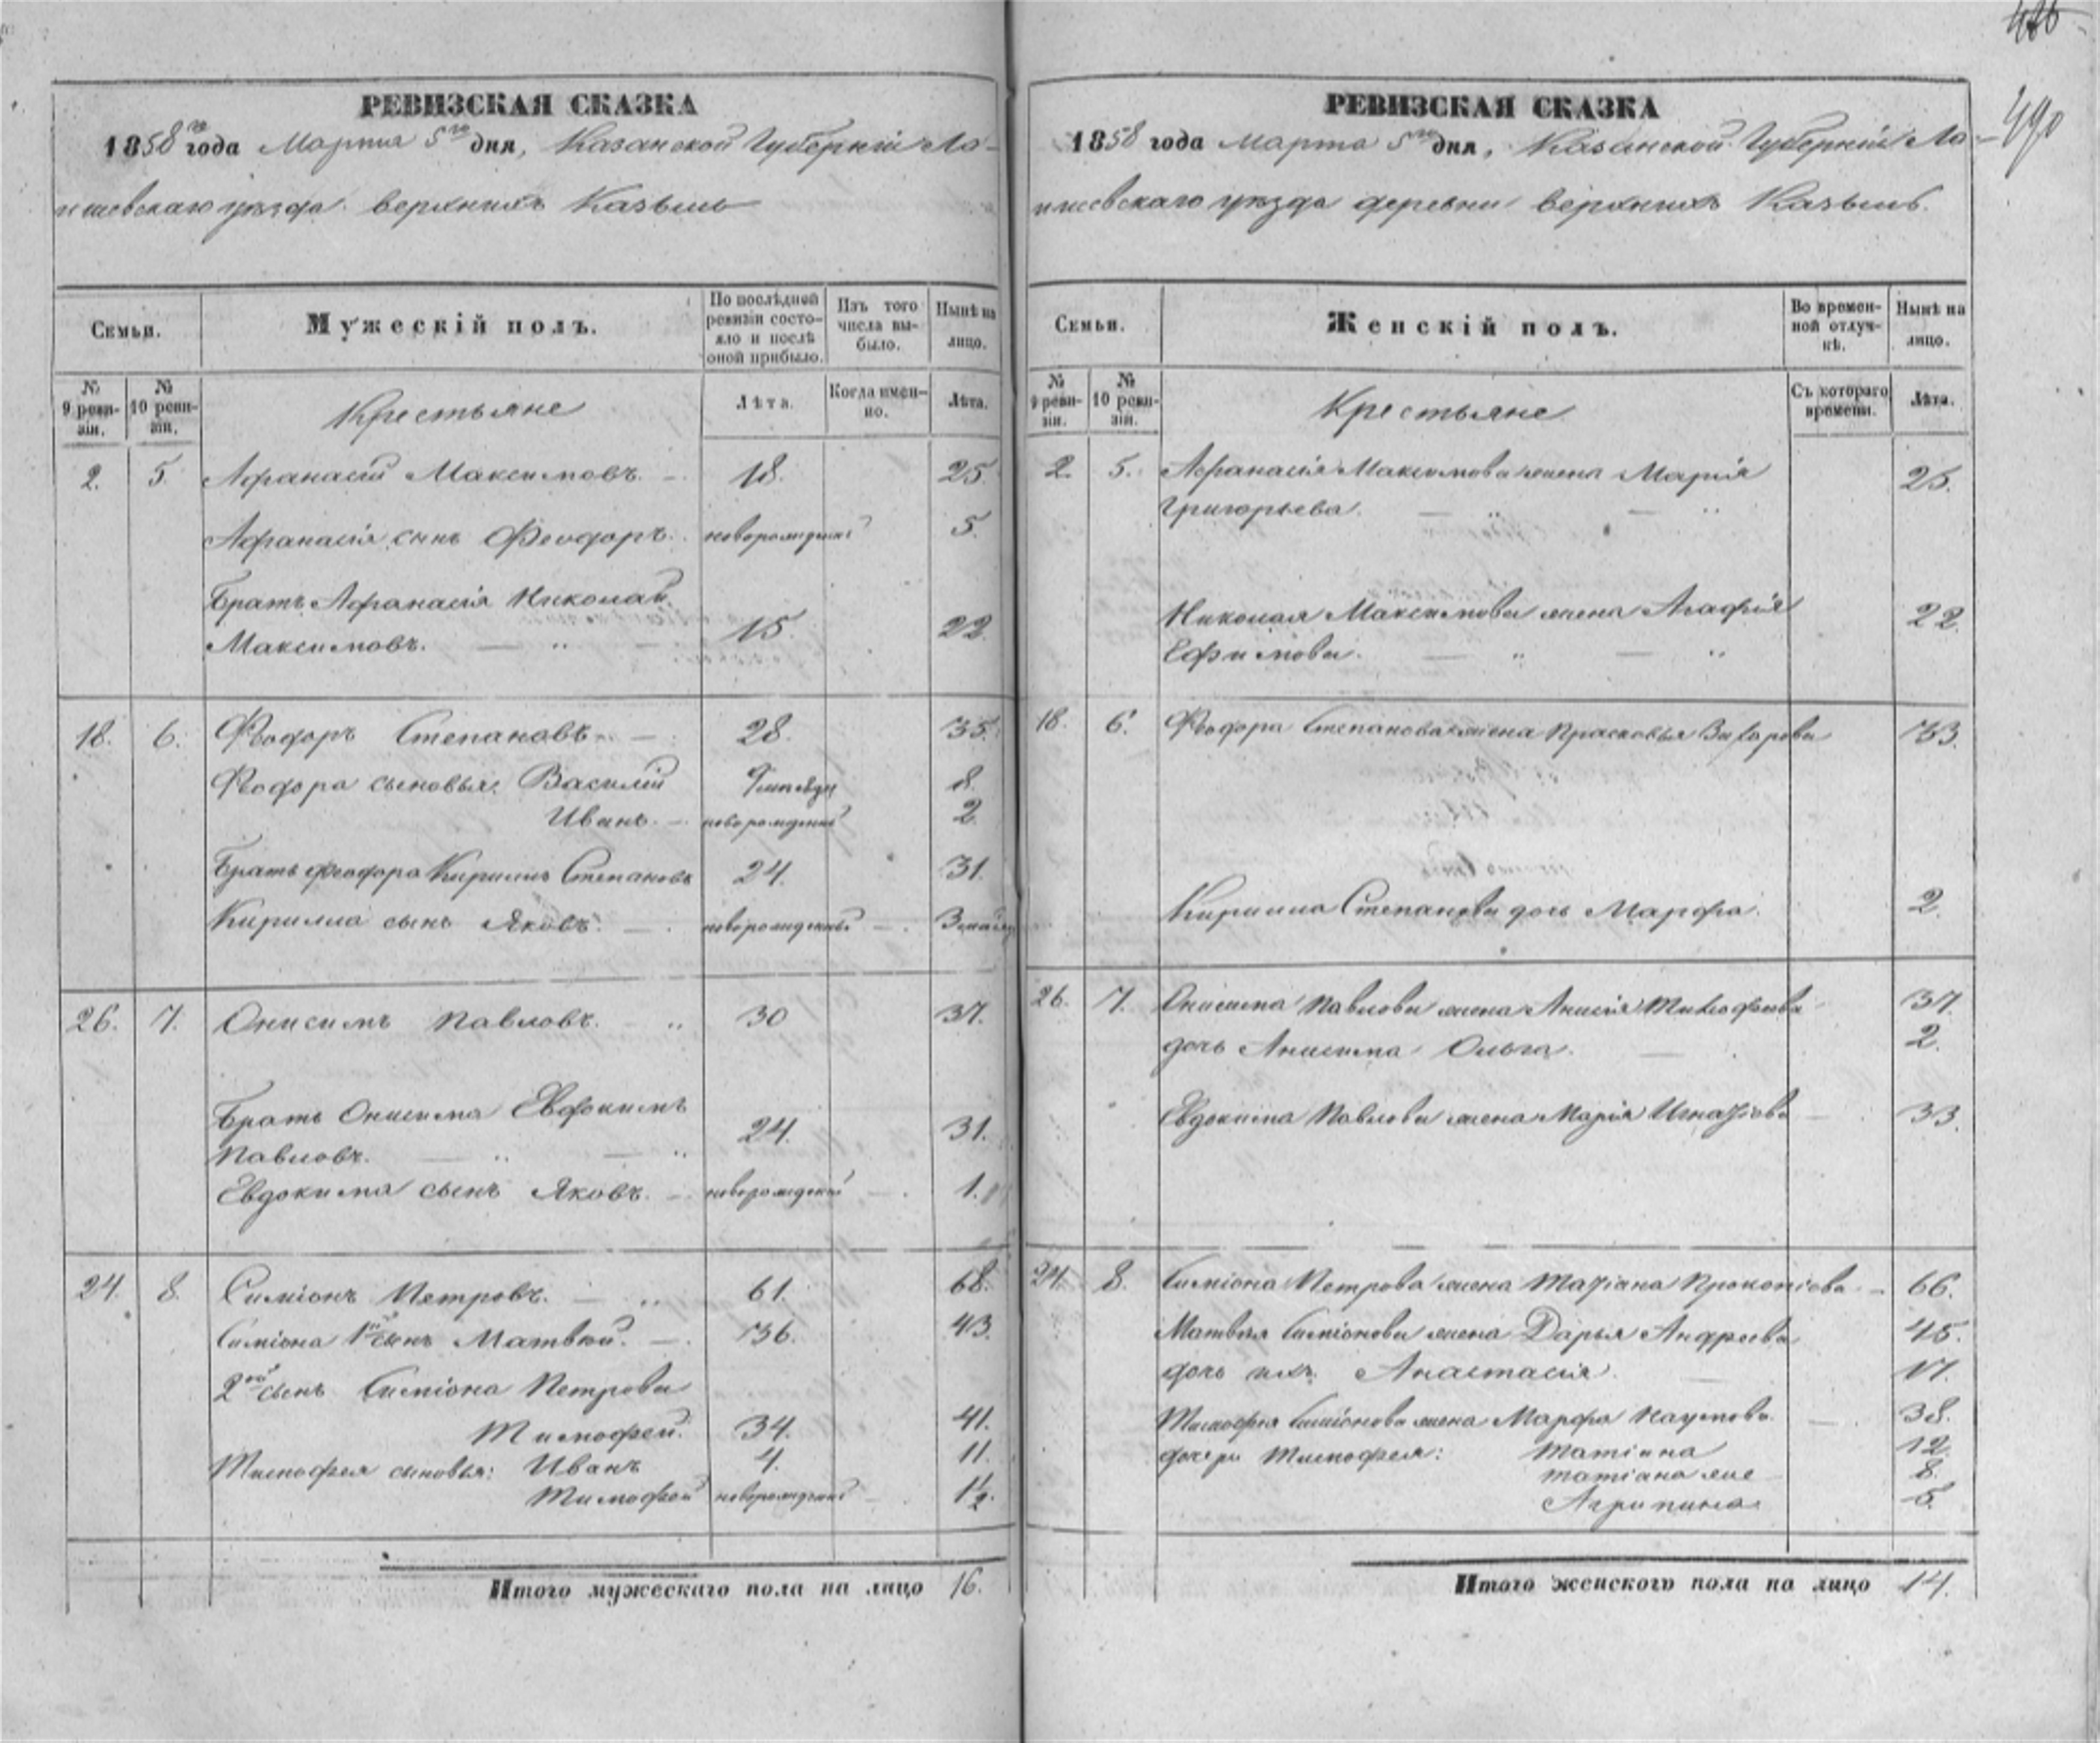 486
490
РЕВИЗСКАЯ СКАЗКА
1858го года Марта 5го дня, Казанской Губерніи Ла-
ишевскаго уѣзда верхнихъ Казыль
Семьи.
Мужескій полъ.
По послѣдней ревизіи состояло и послѣ оной прибыло.
Изъ того числа выбыло.
Нынѣ на лицо.
№ 9 ревизіи.
№ 10 ревизіи.
Крестьяне
Лѣта.
Когда именно.
Лѣта.
2. 5. Афанасій Максимовъ. 18. 25.
Афанасія сынъ Феодоръ. новорожденный 5.
Братъ Афанасія Николай
Максимовъ. 15. 22.
18. 6. Феодоръ Степановъ. 28. 35.
Феодора сыновья: Василій 8.
Иванъ. новорожденный 2.
Братъ Феодора Кириллъ Степановъ 24. 31.
Кирилла сынъ Яковъ. новорожденный
26. 7. Онисимъ Павловъ. 30 37.
Братъ Онисима Евдокимъ
Павловъ. 24. 31.
Евдокима сынъ Яковъ. новорожденный 1.
24. 8. Симіонъ Петровъ. 61. 68.
Симіона 1й сынъ Матвей. 36. 43.
2ой сынъ Симіона Петрова
Тимофей. 34. 41.
Тимофея сыновья: Иванъ 4. 11.
Тимофей новорожденный 1½.
Итого мужескаго пола на лицо 16.
РЕВИЗСКАЯ СКАЗКА
1858 года марта 5го дня, Казанской Губерніи Ла-
ишевскаго уѣзда деревни верхнихъ Казыль.
Семьи.
Женскій полъ.
Во временной отлучкѣ.
Нынѣ на лицо.
№ 9 ревизіи.
№ 10 ревизіи.
Крестьяне
Съ котораго времени.
Лѣта.
2. 5. Афанасія Максимова жена Марія 25.
Григорьева.
Николая Максимова жена Агафія 22.
Ефимова.
18. 6. Феодора Степанова жена Прасковья Захарова 33.
Кирилла Степанова дочь Марфа. 2.
26. 7. Онисима Павлова жена Анисія Тимофеева 37.
дочь Анисима Ольга. 2.
Евдокима Павлова жена Марія Игнатіева 33.
24. 8. Симіона Петрова жена Татіана Прокопіева 66.
Матвея Симіонова жена Дарья Андреева 45.
дочь ихъ Анастасія. 17.
Тимофея Симіонова жена Марфа Наумова. 38.
дочери Тимофея: Татіана 12.
татіана же 8.
Агрипина 5.
Итого женскаго пола на лицо 14.